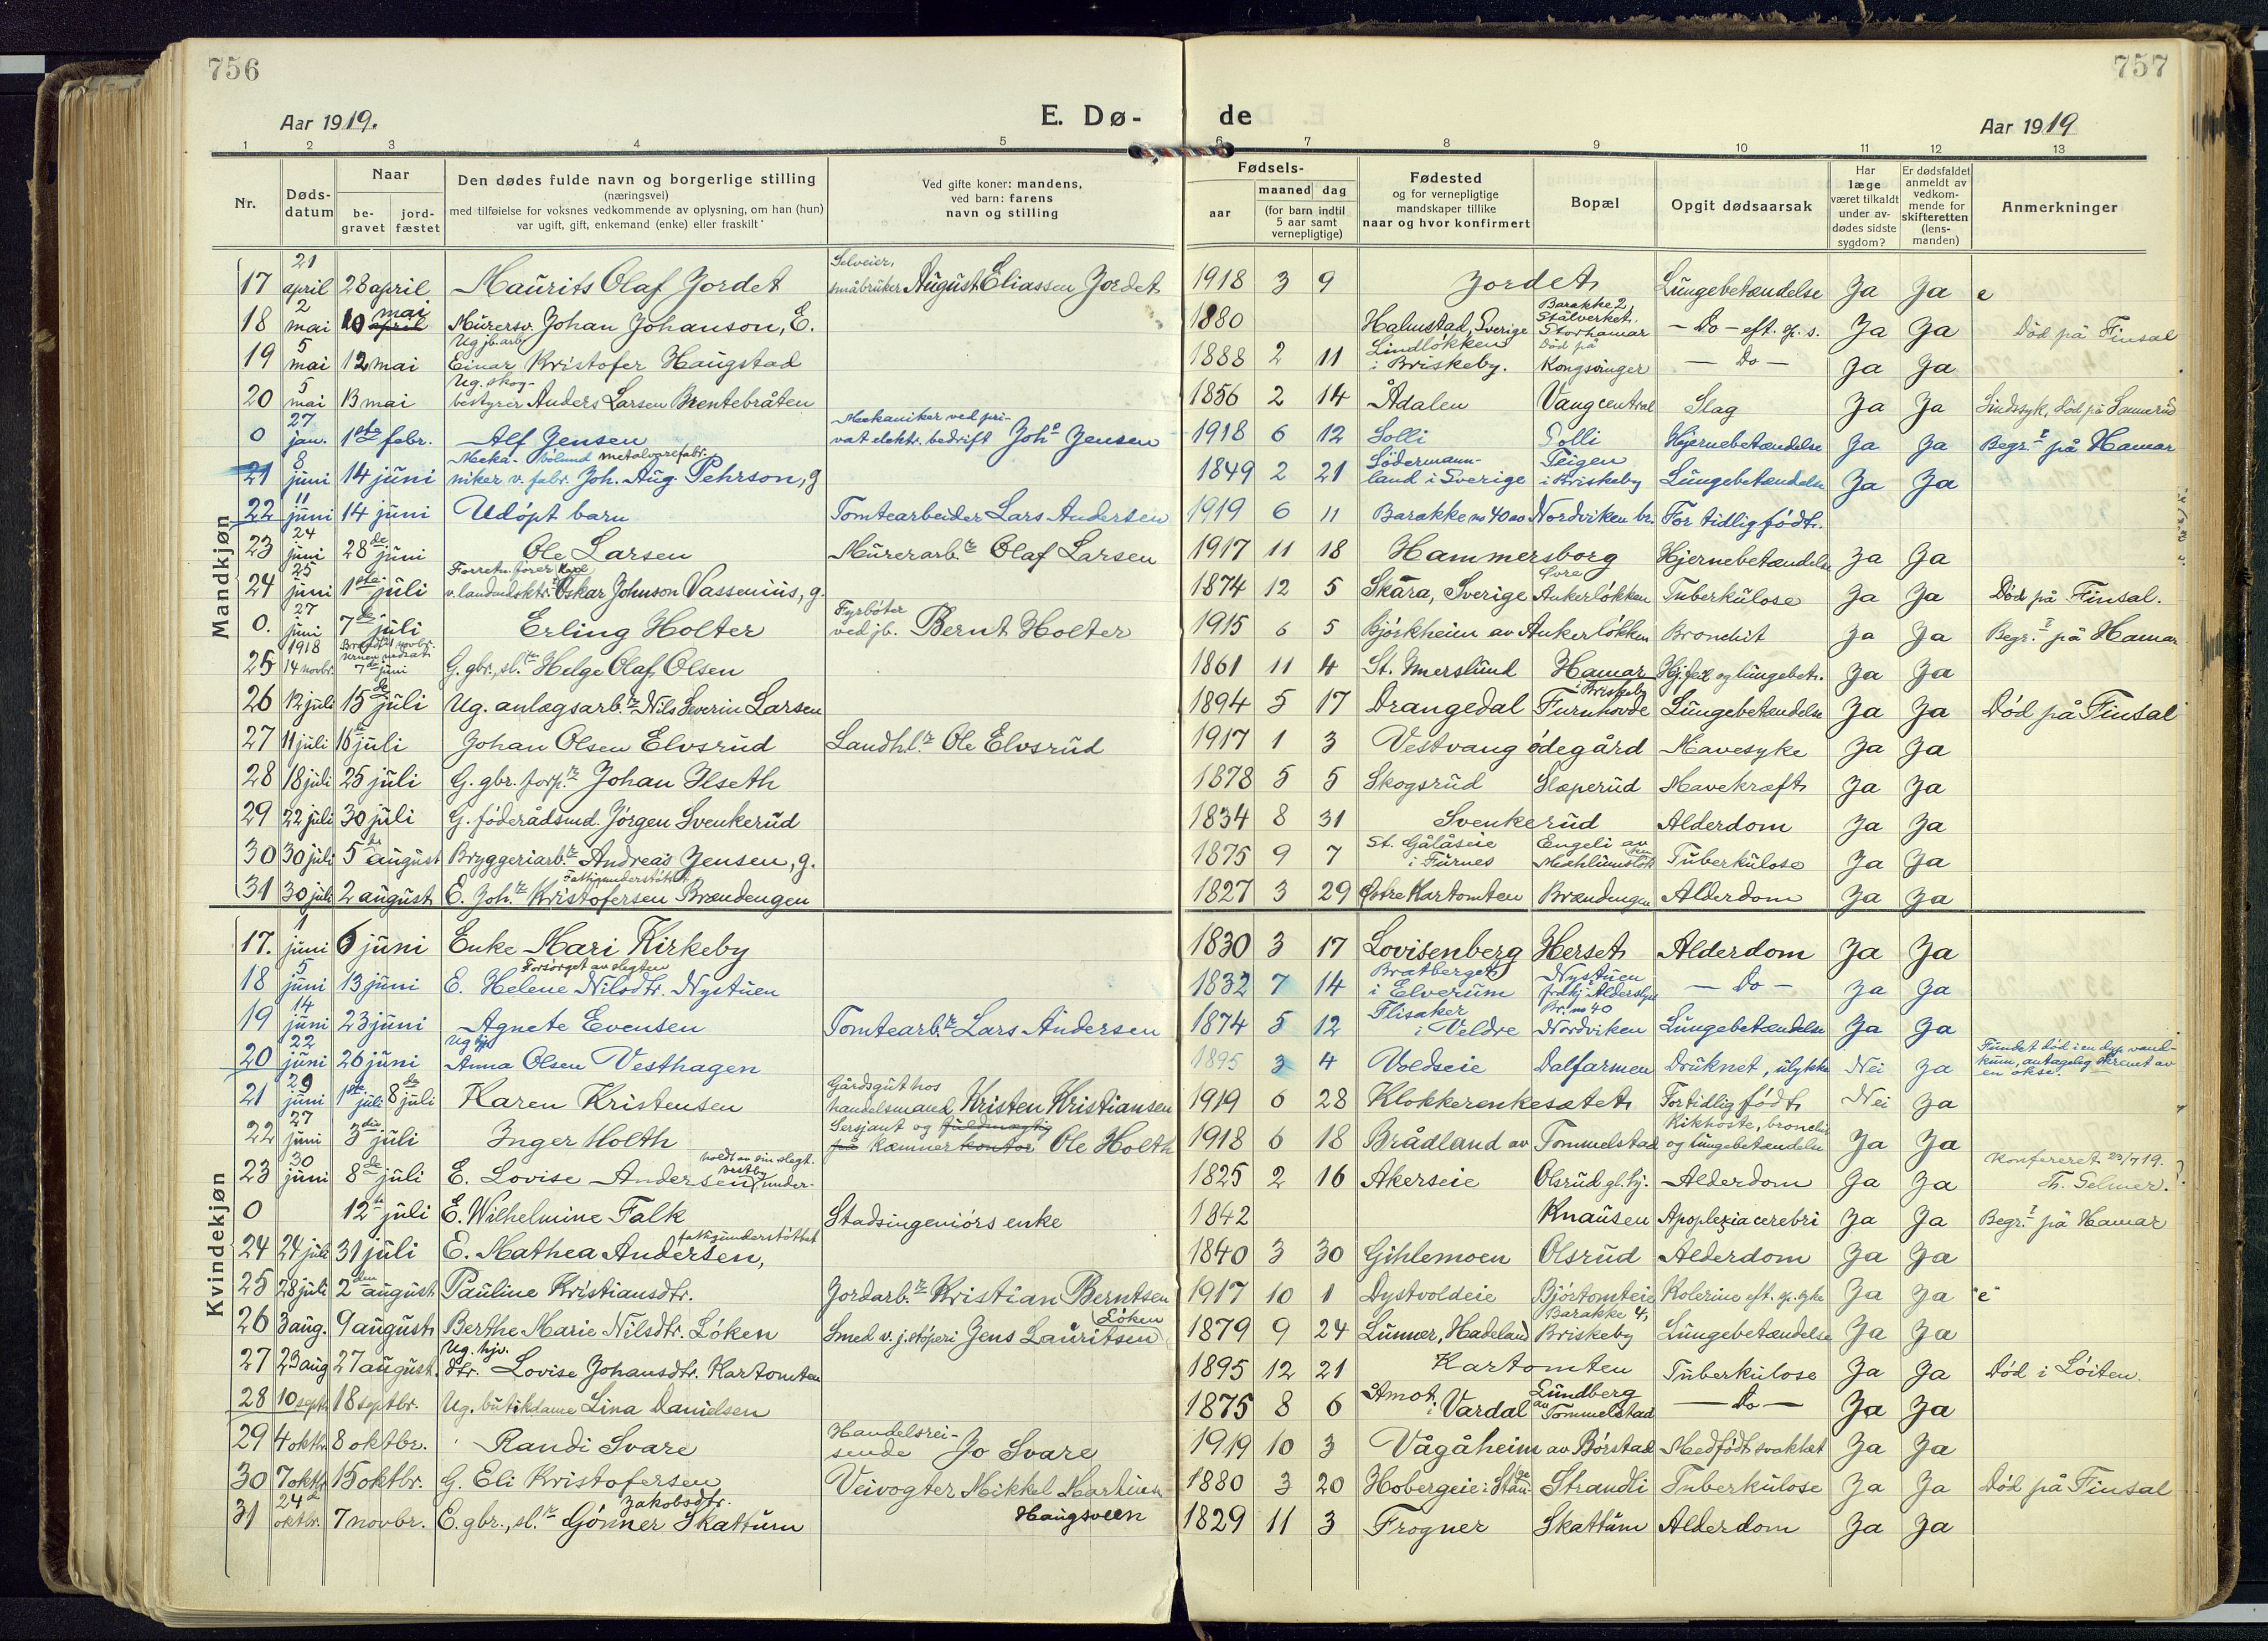 756
757
Aar 1919.
E. Dø-
de
Aar 1919
1 2 3 4 5 6 7 8 9 10 11 12 13
Nr.
Døds-
datum
Naar
be-
gravet
jord-
fæstet
Den dødes fulde navn og borgerlige stilling
(næringsvei)
med tilføielse for voksnes vedkommende av oplysning, om han (hun)
var ugift, gift, enkemand (enke) eller fraskilt
Ved gifte koner: mandens,
ved barn: farens
navn og stilling
Fødsels-
aar
maaned dag
(for barn indtil
5 aar samt
vernepligtige)
Fødested
og for vernepligtige
mandskaper tillike
naar og hvor konfirmert
Bopæl
Opgit dødsaarsak
Har
læge
været tilkaldt
under av-
dødes sidste
sygdom?
Er dødsfaldet
anmeldt av
vedkom-
mende for
skifteretten
(lens-
manden)
Anmerkninger
Mandkjøn
17 21 april 28 april Maurits Olaf Jordet Selveier, småbruker August Eliassen Jordet 1918 3 9 Jordet Lungebetændelse Ja Ja e
18 2 mai 10 april mai Murersv. Johan Johanson, E. 1880 Halmstad, Sverige Barakke 2, Stålverket, Storhamar - Do - eft. sp. s. Ja Ja Död på Finsal
19 5 mai 12 mai Ug jb. arb. Einar Kristofer Haugstad 1888 2 11 Lindløkken i Briskeby. Död på Kongsvinger - Do - Ja Ja
20 5 mai 13 mai Ug. skog- bestyrer Anders Larsen Brentebråten 1856 2 14 Ådalen Vang central Slag Ja Ja Sindssyk, Död på Sanerud
0 27 jan. 1ste febr. Alf Jensen Mekaniker ved pri- vat elektr. bedrift Joh. Jensen 1918 6 12 Solli Solli Hjernebetændelse Ja Ja Begr. på Hamar
21 8 juni 14 juni Meka- niker v. fabr. metalvarefabr. Joh. Aug. Pehrson, g 1849 2 21 Södermann- land i Sverige Teigen i Briskeby Lungebetændelse Ja Ja
22 11 juni 14 juni Udøpt barn Tomtearbeider Lars Andersen 1919 6 11 Barakke no 40 av Nordviken br. For tidlig födt.
23 24 juni 28de juni Ole Larsen Murerarb. Olaf Larsen 1917 11 18 Hammersborg Hjernebetændelse Ja Ja
24 25 juni 1ste juli Forretn. fører Karl v. Oskar Johnson Vassenius, g. 1874 12 5 Skara, Sverige Øvre Ankerløkken Tuberkulose Ja Ja Död på Finsal.
0. 27 juni 7de juli Erling Holter Fyrbøter ved jb. Bernt Holter 1915 6 5 Bjørkheim av Ankerløkken Bronchit Ja Ja Begr. på Hamar
25 1918 14 novbr. 7de juni G. gbr., sl. Helge Olaf Olsen 1861 11 4 St. Imerslund Hamar Hj.feil og lungebet. Ja Ja
26 12 juli 15de juli Ug. anlægsarb. Nils Severin Larsen 1894 5 17 Drangedal Furuhovde i Briskeby Lungebetændelse Ja Ja Död på Finsal
27 11 juli 16de juli Johan Olsen Elvsrud Landhl. Ole Elvsrud 1917 1 3 Vestvang ødegård Mavesyke Ja Ja
28 18 juli 25 juli G. gbr. forp. Johan Ilseth 1878 5 5 Skogsrud Slæperud Mavekræft Ja Ja
29 22 juli 30 juli G. föderådsmd. Jörgen Svenkerud 1834 8 31 Svenkerud Alderdom Ja Ja
30 30 juli 5te august Bryggeriarb. Andreas Jensen, g. 1875 9 7 St. Gålåseie i Furnes Engeli av Tuberkulose Ja Ja
31 30 juli 2 august E. Joh. Kristofersen Brændengen Fattigunderstøttet 1827 3 29 Østre Kartomten Brændengen Alderdom Ja Ja
Kvindekjøn
17. 1 juni 6 juni Enke Mari Kirkeby 1830 3 17 Lovisenberg Herset Alderdom Ja Ja
18 5 juni 13 juni Forsørget av slegten E. Helene Nilsdtr. Nystuen 1832 7 14 Bratberget i Elverum Nystuen - Do - Ja Ja
19 14 juni 23 juni Agnete Evensen Tomtearb. Lars Andersen 1874 5 12 Flisaker i Veldre Br. no 40 Nordviken Lungebetændelse Ja Ja
20 22 juni 26 juni Ug tj. Anna Olsen Vesthagen 1895 3 4 Voldseie Dalfarmen Druknet, ulykke Nei Ja Fundet död i en dyp vand- kum, antagelig skræmt av en okse.
21 29 juni 1ste juli 8de juli Karen Kristensen Gårdsgut hos handelsmand Kristen Kristiansen 1919 6 28 Klokkerenkesætet For tidlig födt Nei Ja
22 27 juni 3die juli Inger Holth Sersjant og fuldmægtig på kæmner kontor Ole Holth 1918 6 18 Brådland av Tommelstad Kikhoste, bronchit og lungebetændelse Ja Ja
23 30 juni 8de juli E. Lovise Andersen Vestby under- holdt av sin slegt. 1825 2 16 Akerseie Olsrud gl. hj. Alderdom Ja Ja Konfereret 23/7 19. Th. Gelmer.
0 12te juli E. Wilhelmine Falk Stadsingeniörs enke 1842 Knausen Apoplexia cerebri Ja Ja Begr. på Hamar
24 24 juli 31 juli E. Mathea Andersen, fattigunderstøttet 1840 3 30 Gihlemoen Olsrud Alderdom Ja Ja
25 28 juli 2den august Pauline Kristiansdtr. Jordarb. Kristian Berntsen 1917 10 1 Dystvoldeie Bjørtomteie Kolerine eft. sp. syke Ja Ja "e"
26 3 aug. 9 august Berthe Marie Nilsdtr. Löken Smed v. j.støperi Jens Lauritsen Löken 1879 9 24 Lunner, Hadeland Barakke 4, Briskeby Lungebetændelse Ja Ja
27 23 aug 27 august Ug. hjv. dtr. Lovise Johansdtr. Kartomten 1895 12 21 Kartomten Tuberkulose Ja Ja Död i Löiten.
28 10 septb 18 septbr. Ug. butikdame Lina Danielsen 1875 8 6 Åmot i Vardal Lundberg av Tommelstad - Do - Ja Ja
29 4 oktbr. 8 oktbr. Randi Svare Handelsrei- sende Jo Svare 1919 10 3 Vågåheim av Børstad Medfødt svakhet Ja Ja
30 7 oktbr 15 oktbr. G. Eli Kristofersen Veivogter Mikkel Martinsen Haugsveen 1880 3 20 Hobergeie i Stange Strandli Tuberkulose Ja Ja Död på Finsal
31 24 oktbr. 7 novbr. E. gbr., sl. Gönner Jakobsdtr. Skattum 1829 11 3 Frogner Skattum Alderdom Ja Ja